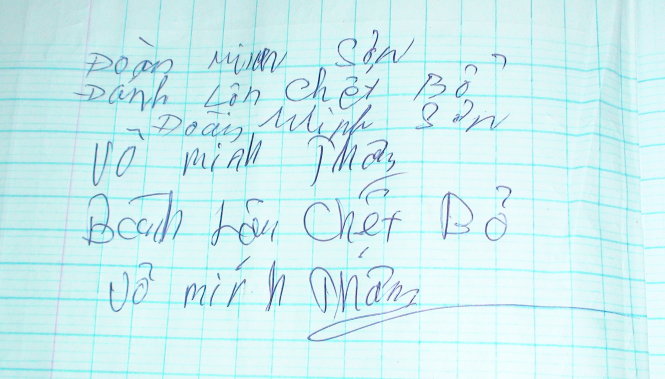 Đoàn Minh Sơn
Đánh Lộn Chết Bỏ
Đoàn Minh Sơn
Võ minh Thân
Đánh Lộn Chết Bỏ
Võ minh Thân